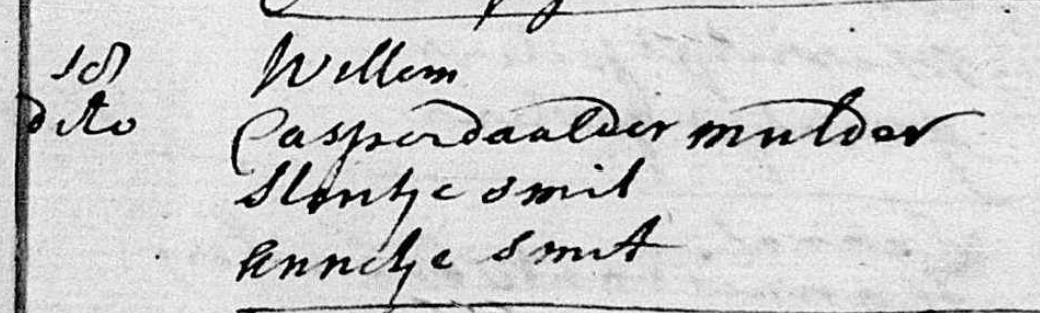 18 Willem
dito Casperdaalder mulder
Slintje Smit
Annetje Smit